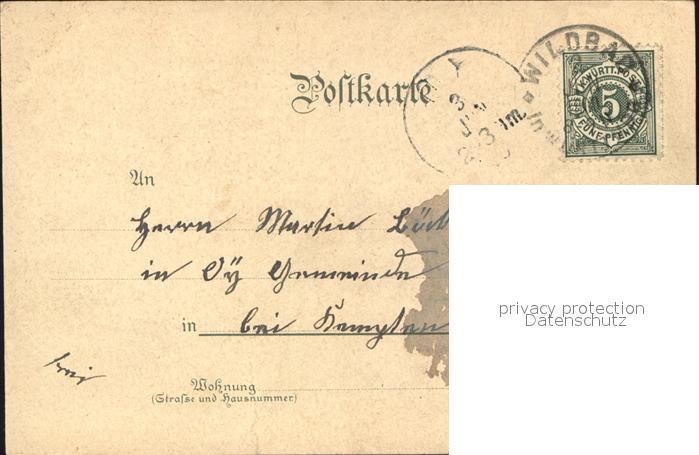 Postkarte
WILDBAD
K.WÜRTT.POST
5
FÜNF PFENNIG
3
An
Herrn Martin
in Oÿ Gemeinde
in bei Kempten
frei
Wohnung
(Straße und Hausnummer)
privacy protection
Datenschutz